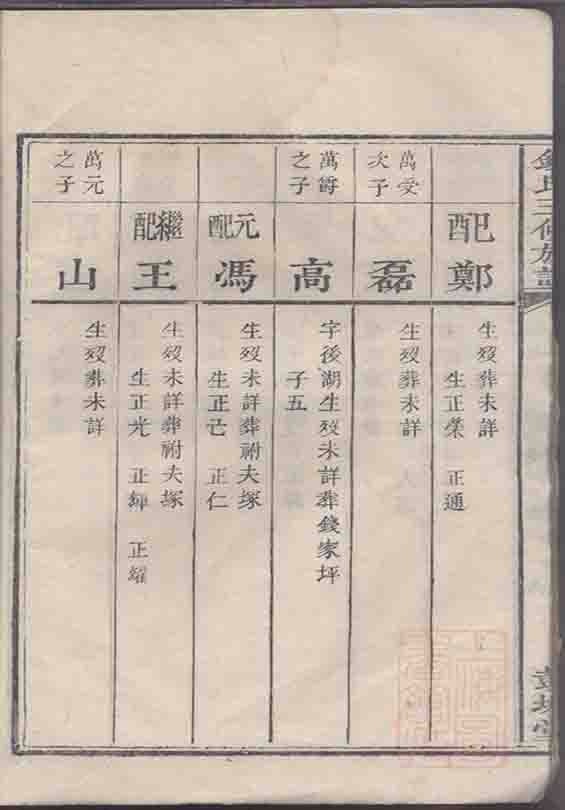 配鄭
生歿葬未詳
生正榮 正通
萬受
次子
磊
生歿葬未詳
萬爵
之子
高
字後湖生歿未詳葬錢家坪
子五
元配馮
生歿未詳葬祔夫塚
生正己 正仁
繼配王
生歿未詳葬祔夫塚
生正光 正輝 正耀
萬元
之子
山
生歿葬未詳